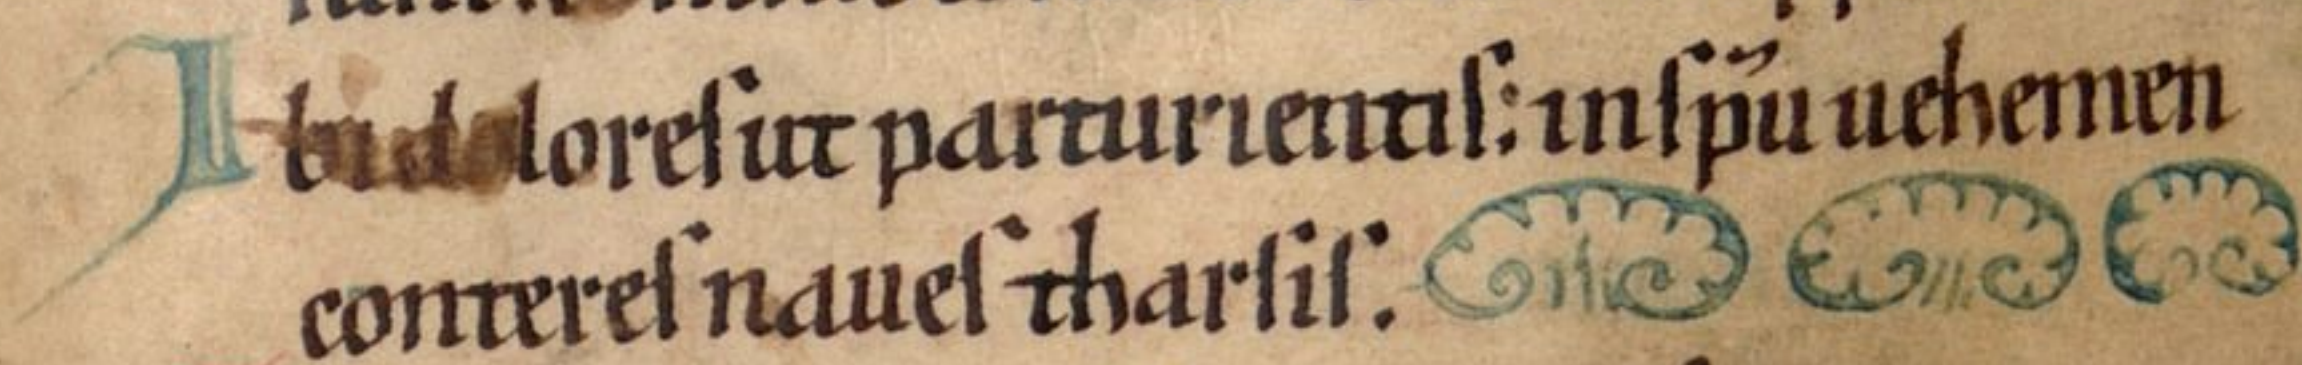 Ibi dolores ut parturientis: in spu uehemen
conteres naues tharsis.